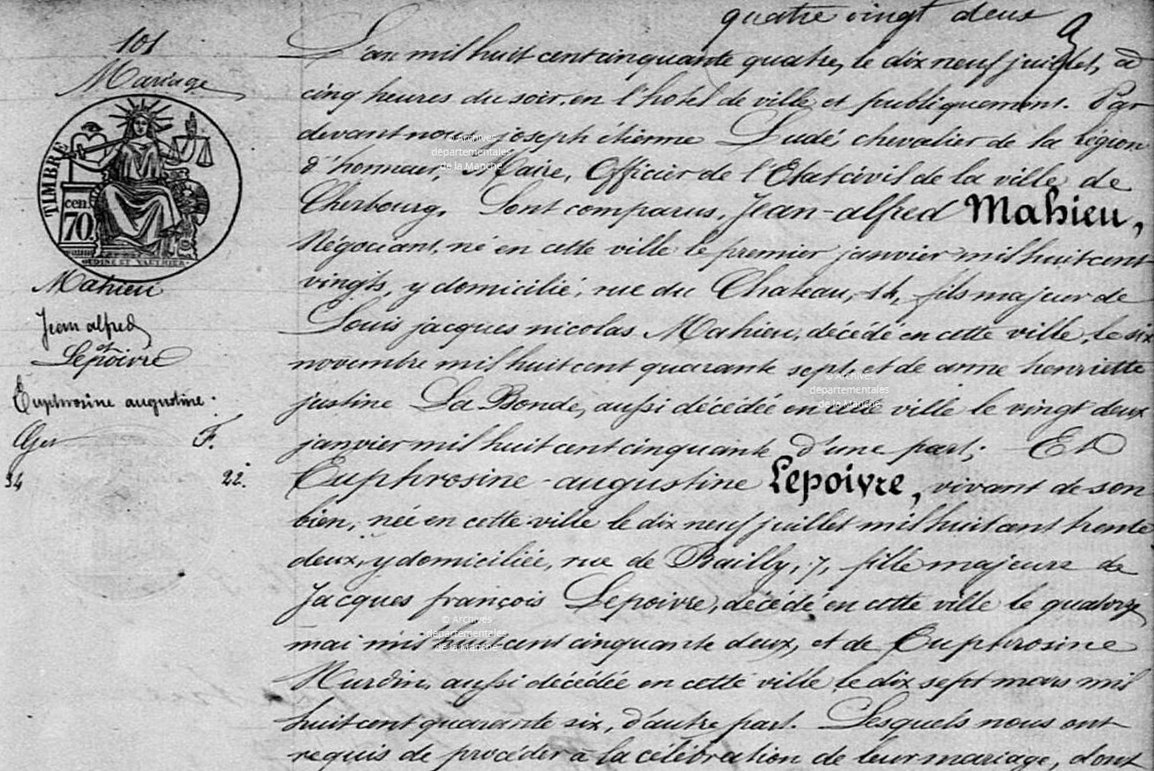 quatre vingt deux
101
Mariage
TIMBRE
cen.
70
Mahieu
Jean alfred
et
Lepoivre
Euphrosine augustine.
Ages F.
34 22.
L'an mil huit cent cinquante quatre, le dix neuf juillet, à
cinq heures du soir, en l'hotel de ville et publiquement. Par
devant nous, joseph étienne Ludé, chevalier de la légion
d'honneur, Maire, Officier de l'Etat civil de la ville de
Cherbourg. Sont comparus, Jean-alfred Mahieu,
Négociant, né en cette ville le premier janvier mil huit cent
vingt, y domicilié, rue du Chateau, 14, fils majeur de
Louis jacques nicolas Mahieu, décédé en cette ville, le six
novembre mil huit cent quarante sept, et de anne henriette
justine La Bonde, aussi décédée en cette ville le vingt deux
janvier mil huit cent cinquante d'une part; Et
Euphrosine-augustine Lepoivre, vivant de son
bien, née en cette ville le dix neuf juillet mil huit cent trente
deux, y domiciliée, rue de Bailly, 7, fille majeure de
Jacques françois Lepoivre, décédé en cette ville le quatorze
mai mil huit cent cinquante deux, et de Euphrosine
Murdin, aussi décédée en cette ville le dix sept mars mil
huit cent quarante six, d'autre part. Lesquels nous ont
requis de procéder à la célébration de leur mariage, dont
© Archives
départementales
de la Manche
© Archives
départementales
de la Manche
© Archives
départementales
de la Manche